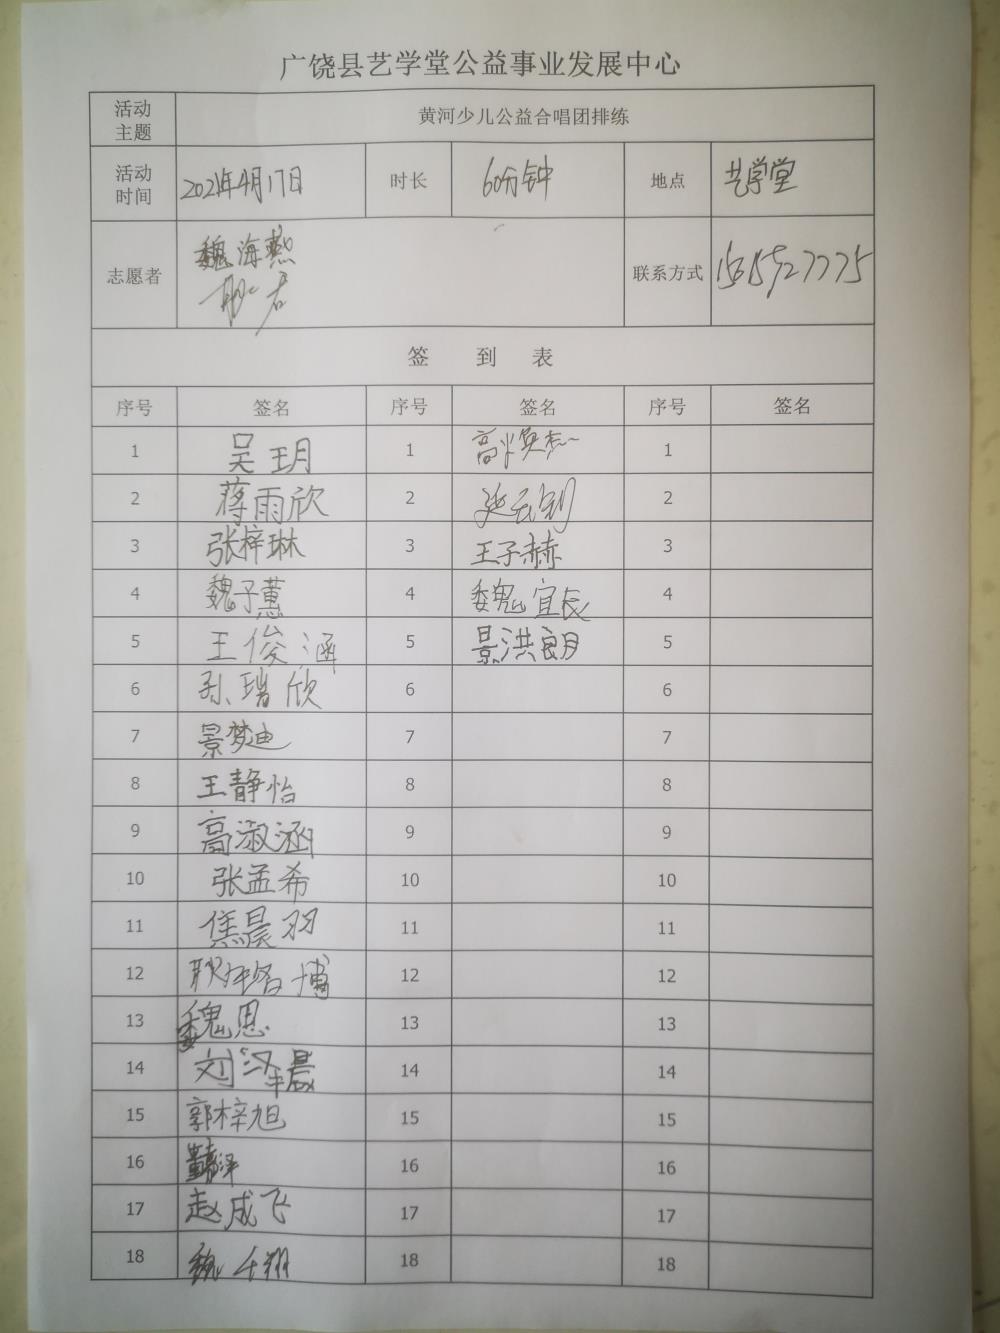 广饶县艺学堂公益事业发展中心
活动主题 黄河少儿公益合唱团排练
活动时间 2021年4月17日 时长 60分钟 地点 艺学堂
志愿者 魏海燕 联系方式
签 到 表
序号 签名 序号 签名 序号 签名
1 吴玥 1 高 1
2 蒋雨欣 2 2
3 张梓琳 3 王子赫 3
4 魏子蕙 4 魏宜辰 4
5 王俊涵 5 景洪朗 5
6 孙瑞欣 6 6
7 景梦迪 7 7
8 王静怡 8 8
9 高淑涵 9 9
10 张孟希 10 10
11 焦晨羽 11 11
12 博 12 12
13 魏恩 13 13
14 刘泽晨 14 14
15 郭梓旭 15 15
16 16 16
17 赵成飞 17 17
18 魏 翔 18 18